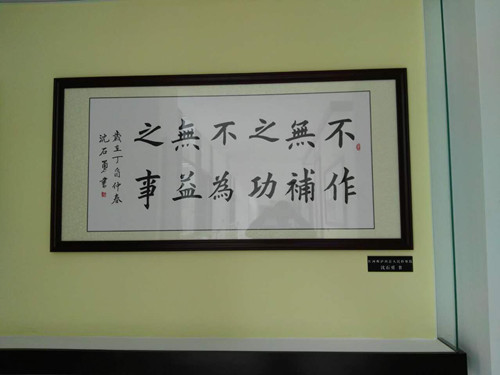 不作
無補
之功
不為
無益
之事
歲在丁酉仲春
沈石勇書